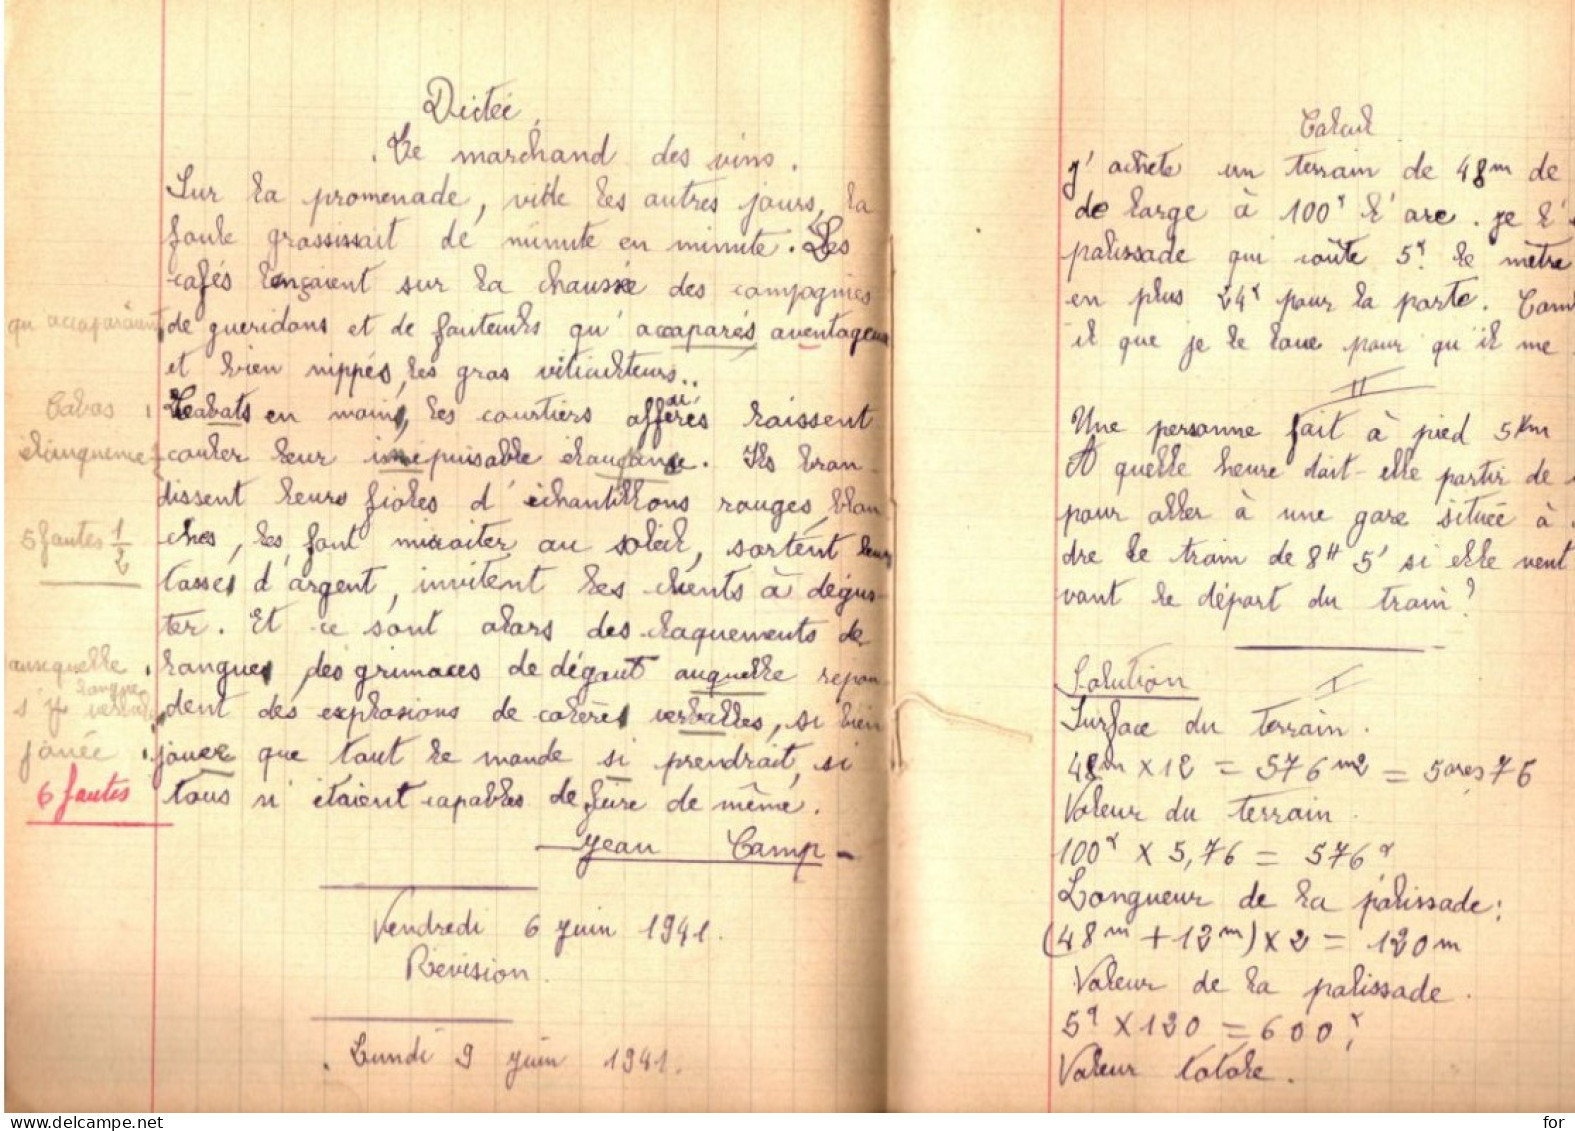 Dictée
Le marchand des vins.
Sur la promenade, ville les autres jours, la
foule grossissait de minute en minute. Les
cafés lançaient sur la chaussée des compagnies
qu'accaparaient de gueridons et de fauteuils qu'accaparés aventageux
et bien nippés, les gros viticulteurs..
Cabas : Leabats en main, les courtiers affairés laissent
éloquence : couler leur inépuisable
Ils bran-
dissent leurs fioles d'échantillons rouges, blan
5 fautes 1/2 ches, les font miroiter au soleil, sortent leurs
tasses d'argent, invitent les clients à dégus-
ter. Et ce sont alors des claquements de
auxquelle . langues, des grimaces de dégout auquelle repon-
langue
s'y verbal dent des explosions de colères verballes, si bien
jouée : jouer que tout le monde si prendrait, si
6 fautes tous n'étaient capables de faire de même.
Jean Camp -
Vendredi 6 juin 1941.
Révision.
Lundi 9 juin 1941.
Calcul
J'achète un terrain de 48m de
de large à 100f l'are. je l'
palissade qui coûte 5f. le mètre
en plus 24f pour la porte. Com
il que je le loue pour qu'il me
II
Une personne fait à pied 5Km
A quelle heure doit-elle partir de
pour aller à une gare située à
dre le train de 8H 5' si elle veut
vant le départ du train?
Solution I
Surface du terrain.
48m x 12 = 576 m2 = 5ares 76
Valeur du terrain.
100f x 5,76 = 576f
Longueur de la palissade:
(48m + 12m) x 2 = 120m
Valeur de la palissade.
5f x 120 = 600f
Valeur totale.
delcampe.net
for